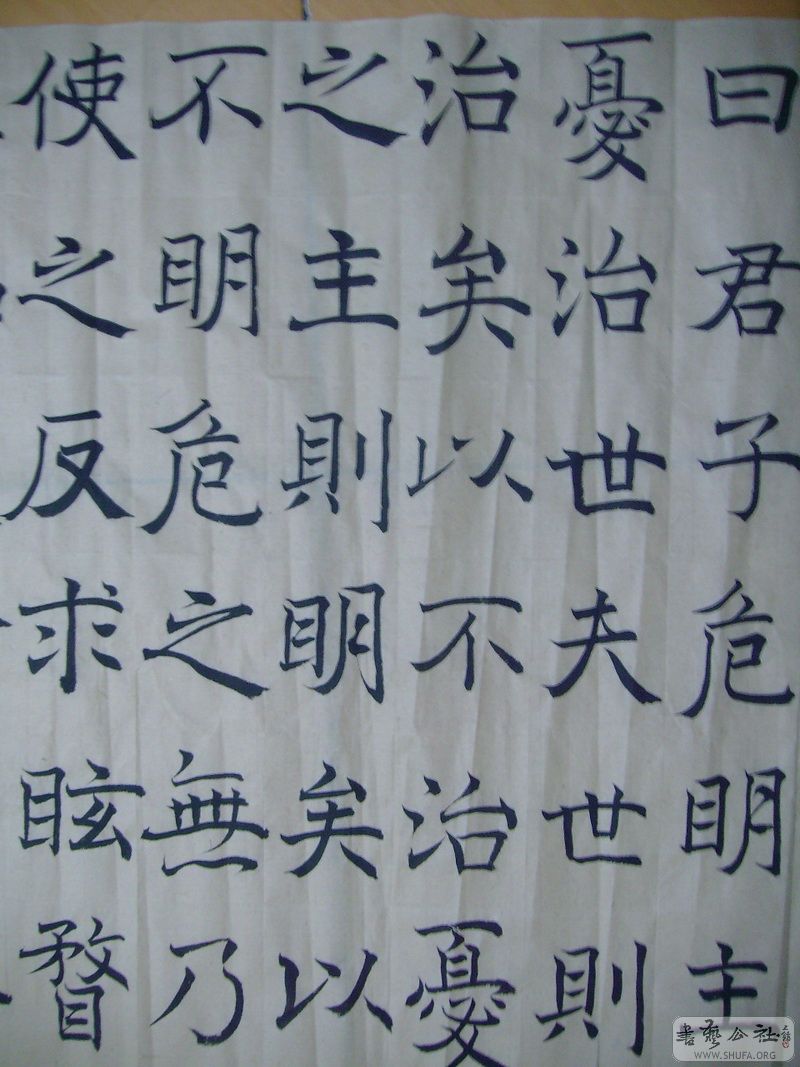 曰君子危眀主
憂治世夫世則
治矣以不治憂
之主則眀矣以
不眀危之無乃
使之反求眩瞀
書藝公社
WWW.SHUFA.ORG